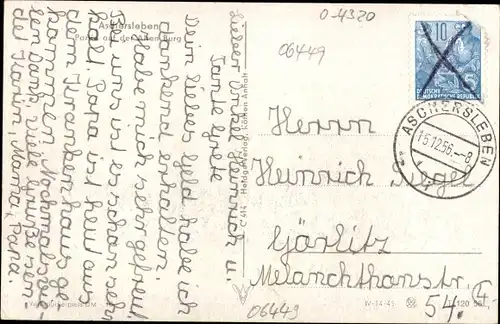 Aschersleben
Partie auf der Alten Burg
0-4320
06449
10
DEUTSCHE
DEMOKRATISCHE REPUBLIK
ASCHERSLEBEN
15.12.56.-8
Lieber Onkel Heinrich u.
Tante Grete
Dein liebes Geld habe ich
dankend erhalten.
Habe mich sehr gefreut.
Bei uns ist es schon sehr
kalt. Papa ist heut aus
dem Krankenhaus ge-
kommen. Nochmals vie-
len Dank, viele Grüße sen-
det Karin, Mama, Papa.
C 414 Heldge-Verlag, Köthen-Anhalt
Herrn
Heinrich
Görlitz
Melanchthonstr.
54. II
06449
IV-14-45